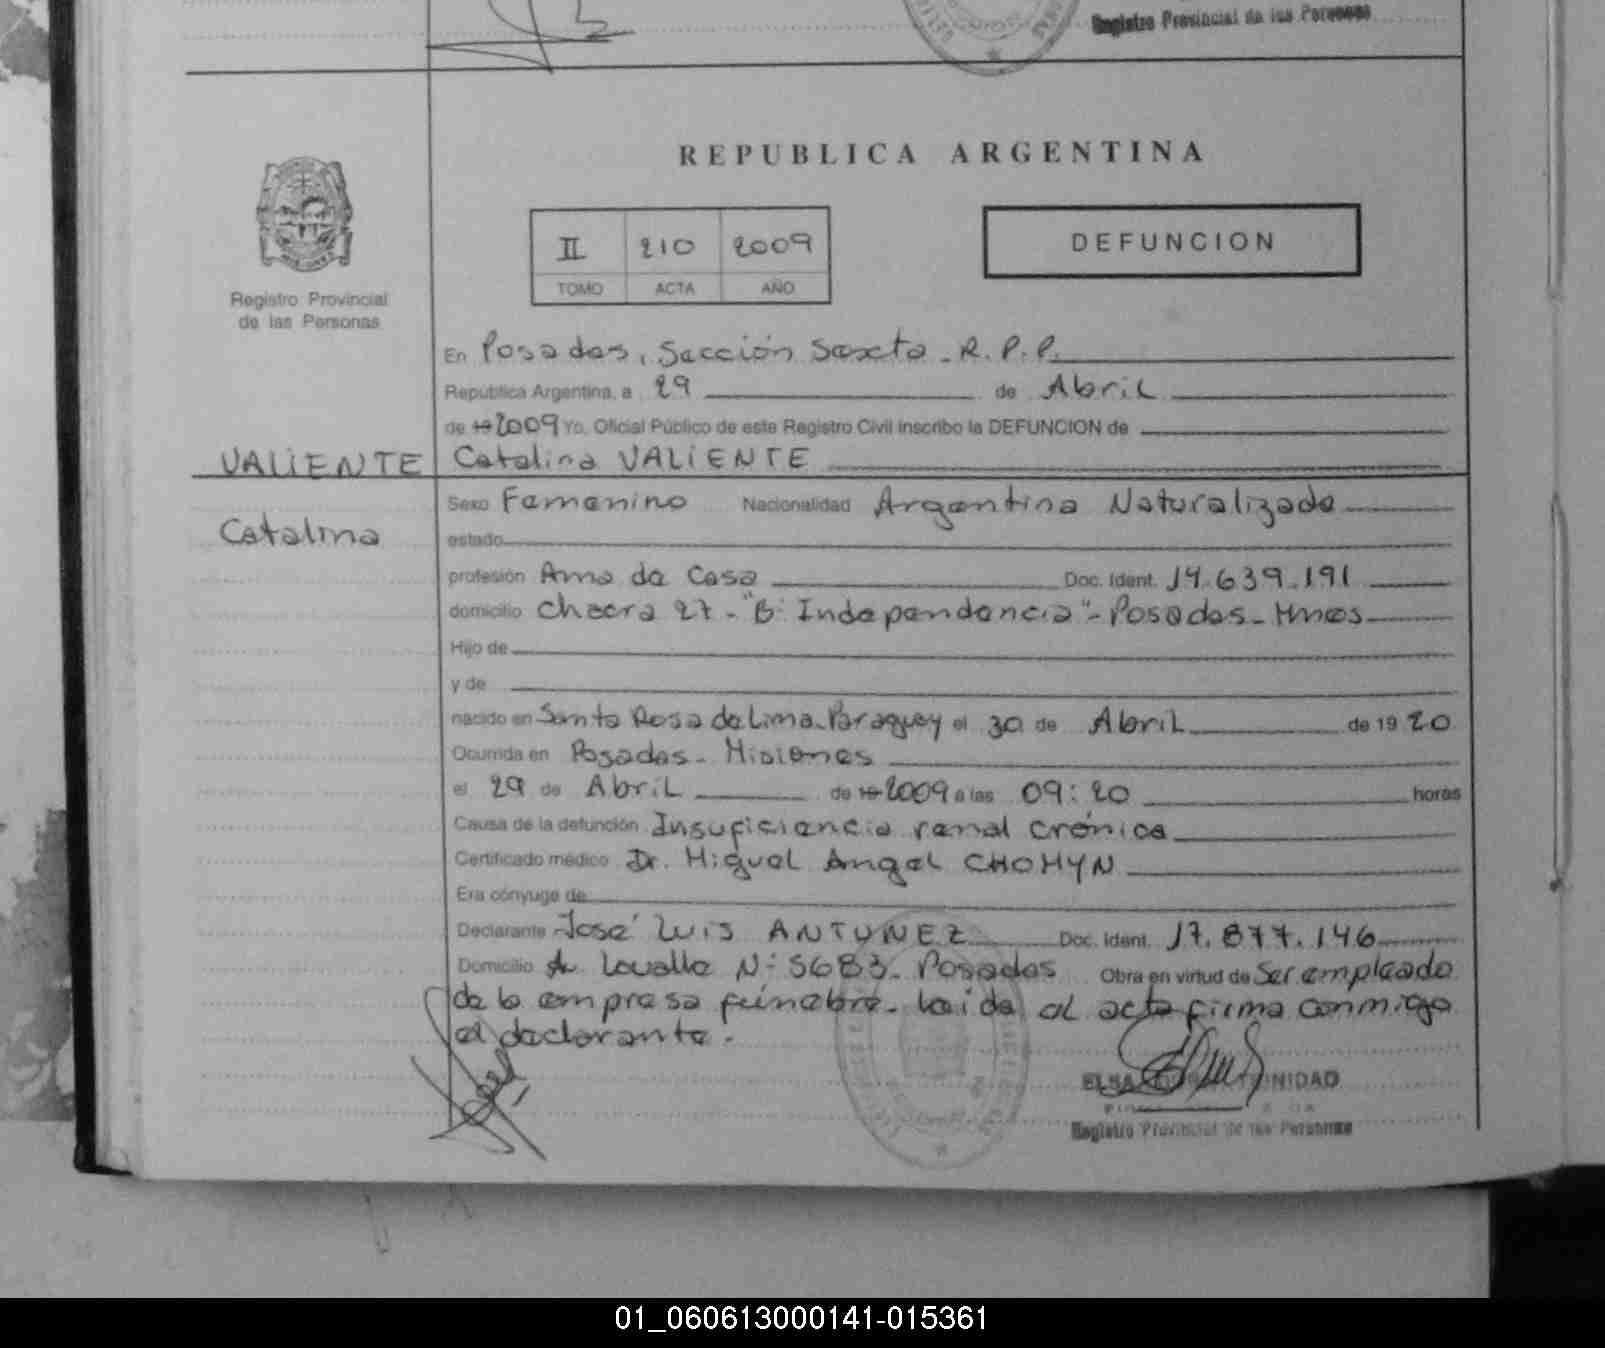 Registro Provincial de las Personas
REPUBLICA ARGENTINA
II 210 2009
TOMO ACTA AÑO
DEFUNCION
Registro Provincial
de las Personas
En Posadas, Sección Sexta - R. P. P.
República Argentina, a 29 de Abril
de 19 2009 Yo, Oficial Público de este Registro Civil inscribo la DEFUNCION de
VALIENTE Catalina VALIENTE
Catalina
Sexo Femenino Nacionalidad Argentina Naturalizada
estado
profesión Ama de Casa Doc. Ident. 14.639.191
domicilio Chacra 27 - "B: Independencia" - Posadas - Mnes
Hijo de
y de
nacido en Santa Rosa de Lima - Paraguay el 30 de Abril de 19 20
Ocurrida en Posadas - Misiones
el 29 de Abril de 19 2009 a las 09:20 horas
Causa de la defunción Insuficiencia renal crónica
Certificado médico Dr. Miguel Angel CHOMYN
Era cónyuge de
Declarante José Luis ANTUNEZ Doc. Ident. 17.877.146
Domicilio Av Lavalle N: 5683 - Posadas Obra en virtud de Ser empleado
de la empresa fúnebre - Leida el acta firma conmigo
el declarante.
ELSA TRINIDAD
Registro Provincial de las Personas
01_060613000141-015361